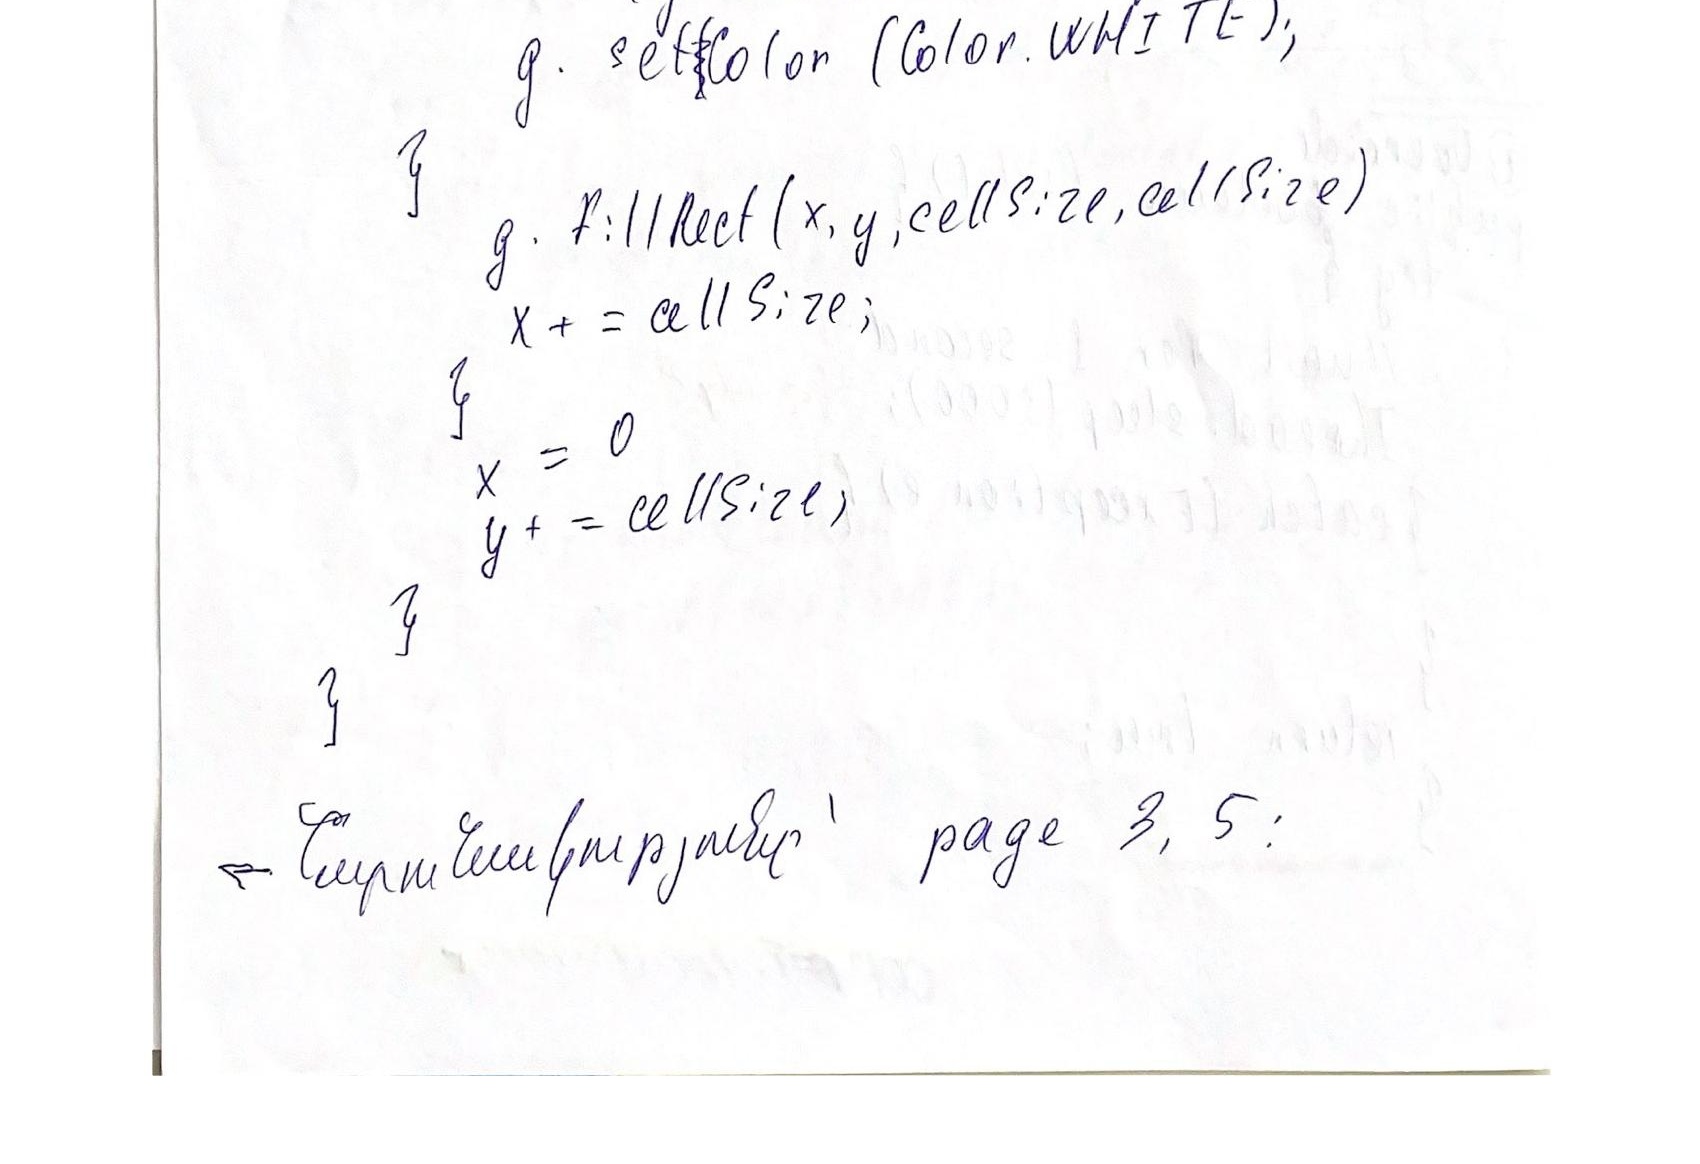 g. setColor (Color.WHITE);
}
g. fillRect(x, y, cellSize, cellSize)
x + = cellSize;
}
x = 0
y + = cellSize;
}
}
← Շարունակությունը՝ page 3, 5: